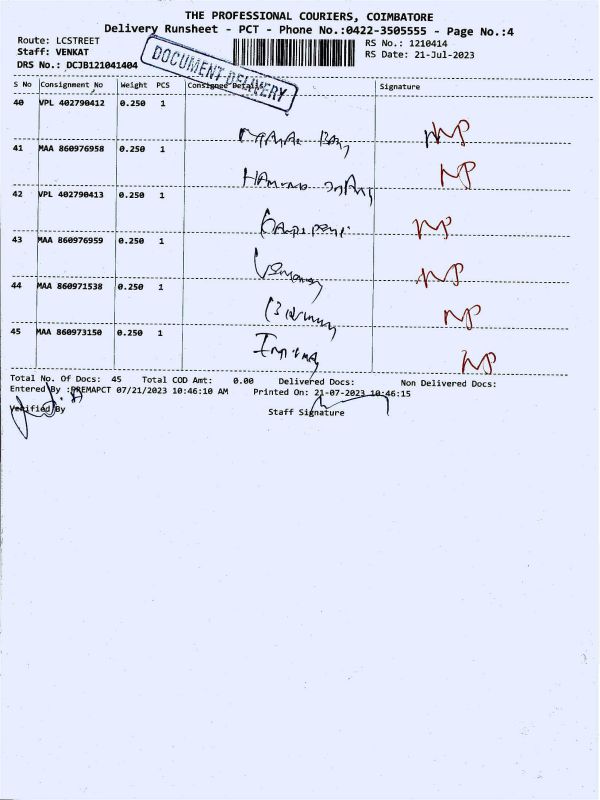 THE PROFESSIONAL COURIERS, COIMBATORE
Delivery Runsheet - PCT - Phone No.:0422-3505555 - Page No.:4
Route: LCSTREET
RS No.: 1210414
Staff: VENKAT
RS Date: 21-Jul-2023
DRS No.: DCJB121041404
DOCUMENT DELIVERY
S No Consignment No Weight PCS Consignee Details Signature
40 VPL 402790412 0.250 1
NP
41 MAA 860976958 0.250 1
NP
42 VPL 402790413 0.250 1
NP
43 MAA 860976959 0.250 1
NP
44 MAA 860971538 0.250 1
NP
45 MAA 860973150 0.250 1
NP
Total No. Of Docs: 45 Total COD Amt: 0.00 Delivered Docs: Non Delivered Docs:
Entered By :PREMAPCT 07/21/2023 10:46:10 AM Printed On: 21-07-2023 10:46:15
Verified By
Staff Signature